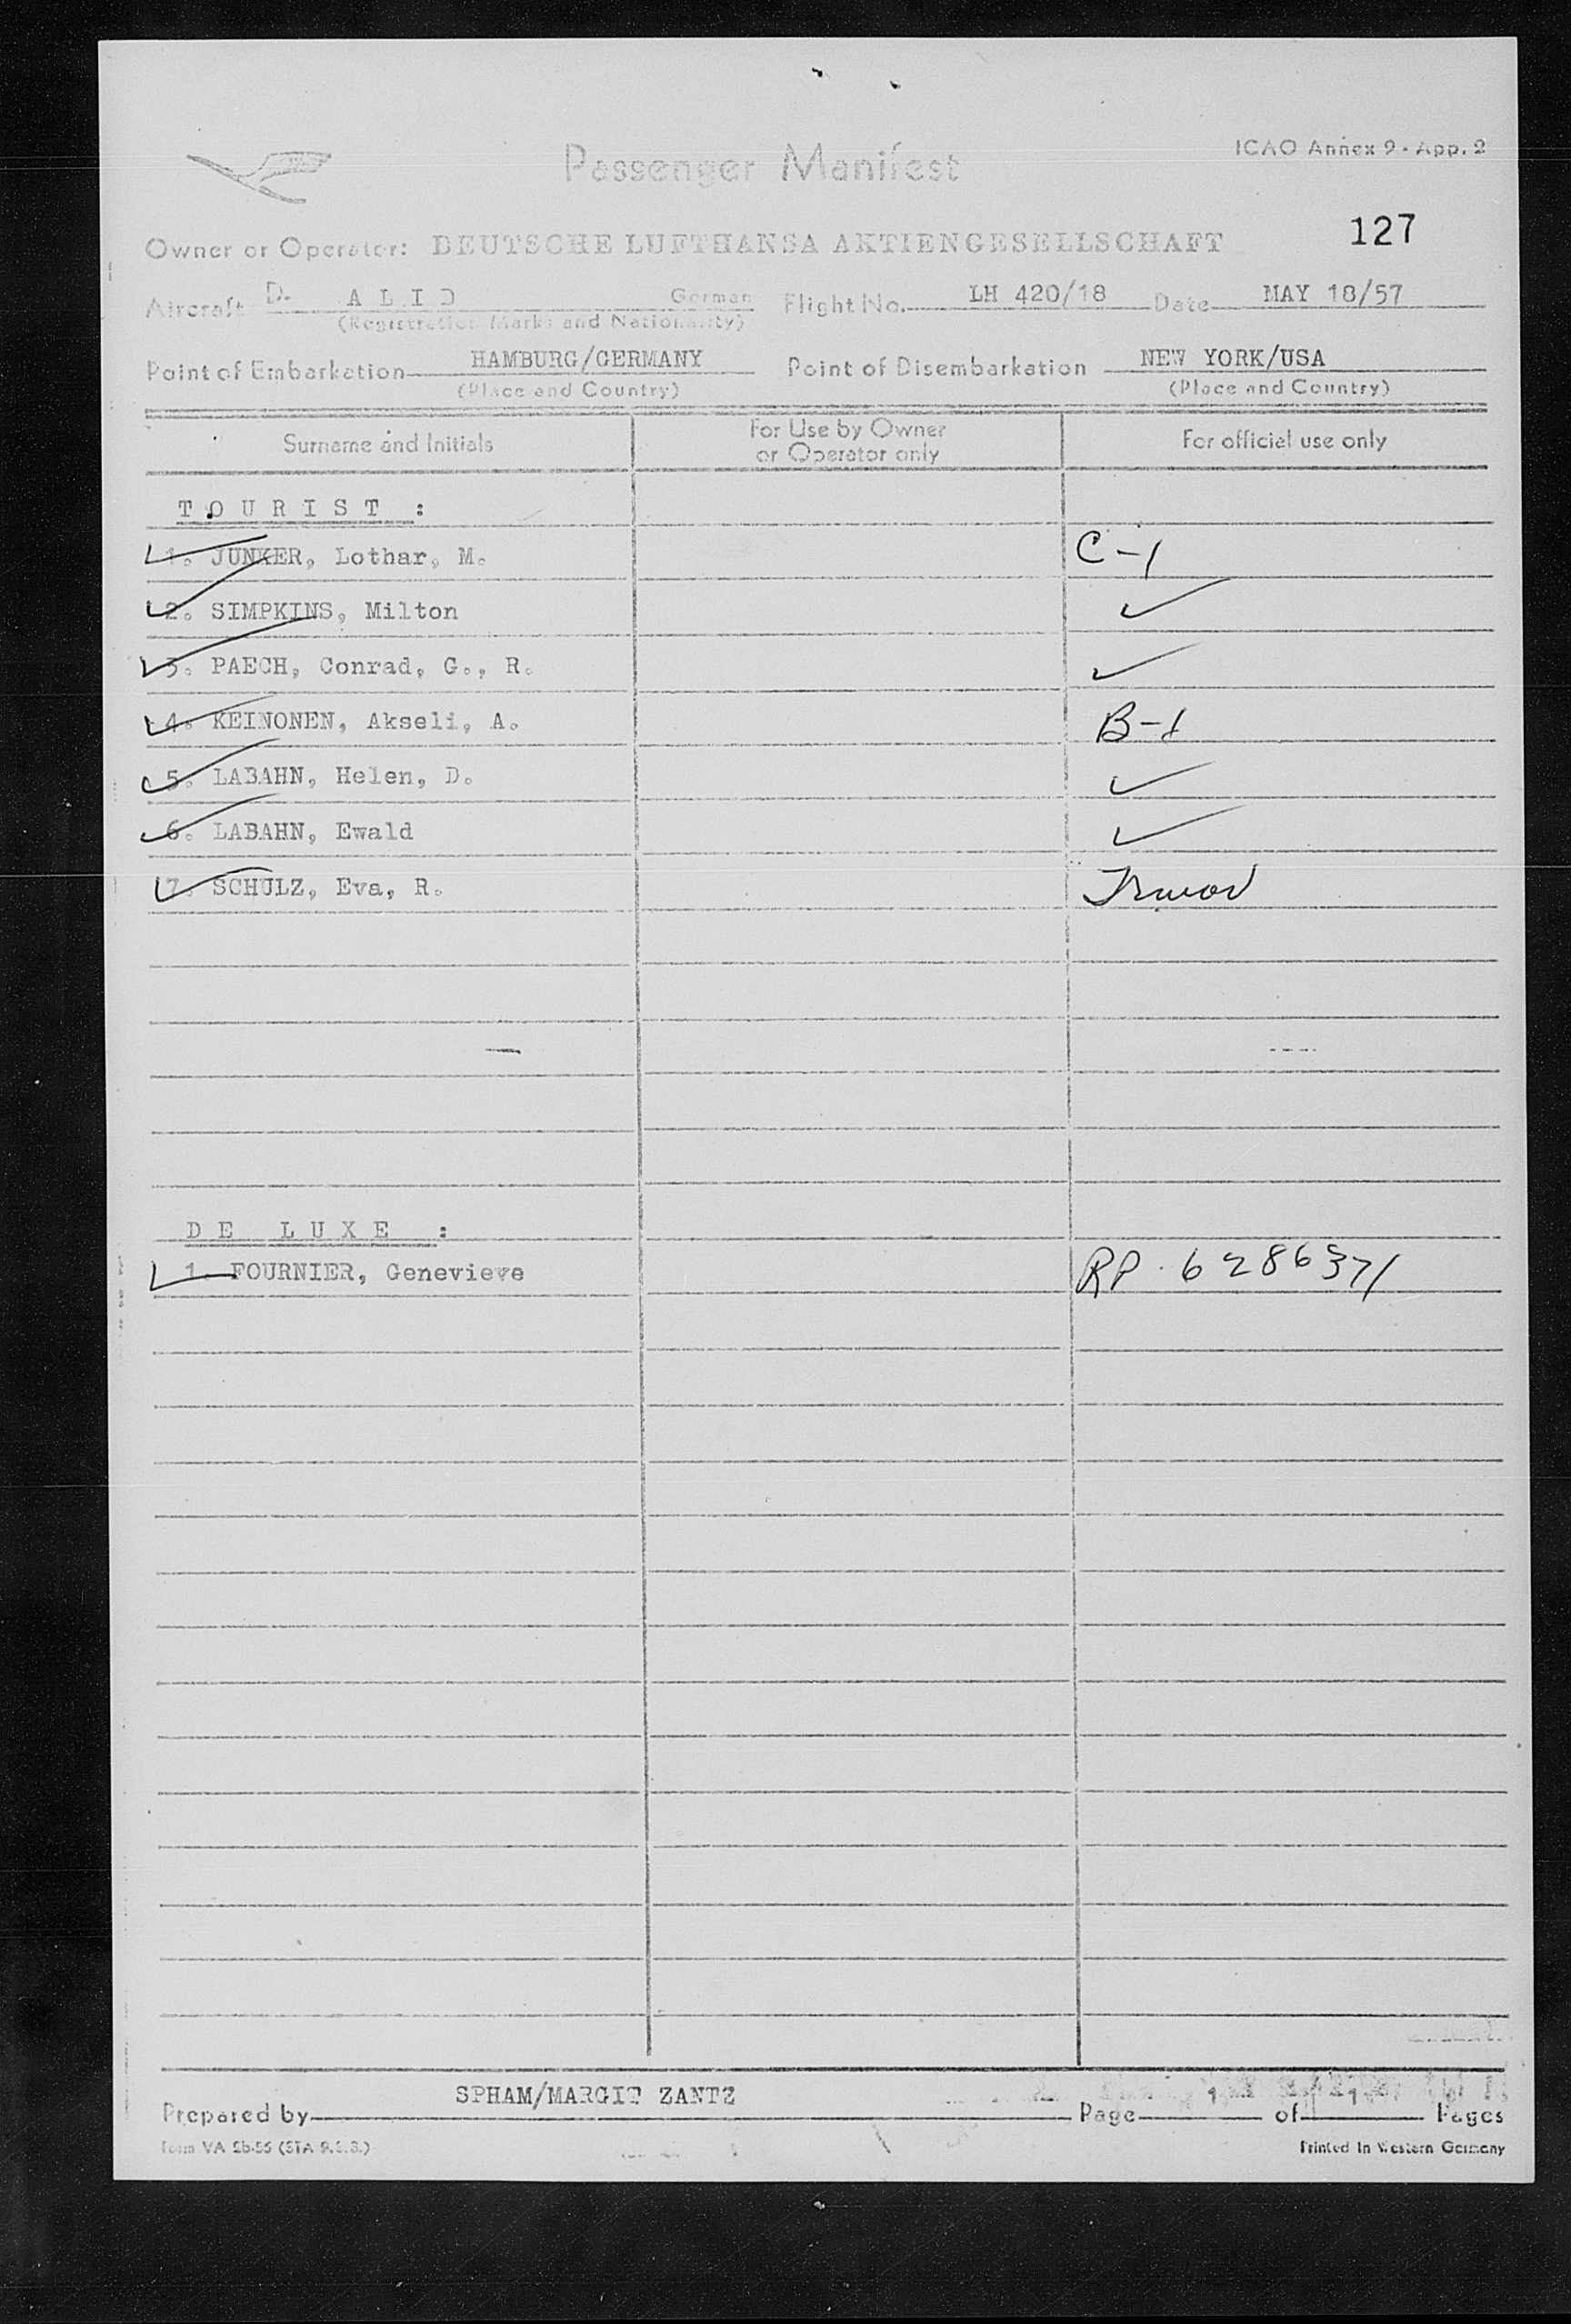 Passenger Manifest
ICAO Annex 9 - App. 2
127
Owner or Operator: DEUTSCHE LUFTHANSA AKTIENGESELLSCHAFT
Aircraft D- A L I D German Flight No. LH 420/18 Date MAY 18/57
(Registration Marks and Nationality)
Point of Embarkation HAMBURG/GERMANY Point of Disembarkation NEW YORK/USA
(Place and Country) (Place and Country)
Surname and Initials For Use by Owner or Operator only For official use only
T O U R I S T :
1. JUNKER, Lothar, M. C-1
2. SIMPKINS, Milton ✓
3. PAECH, Conrad, G., R. ✓
4. KEINONEN, Akseli, A. B-1
5. LABAHN, Helen, D. ✓
6. LABAHN, Ewald ✓
7. SCHULZ, Eva, R.
D E L U X E :
1. FOURNIER, Genevieve RP. 6286371
SPHAM/MARGIT ZANTZ
Prepared by Page 1 of 1 Pages
Form VA 2b-55 Printed in Western Germany